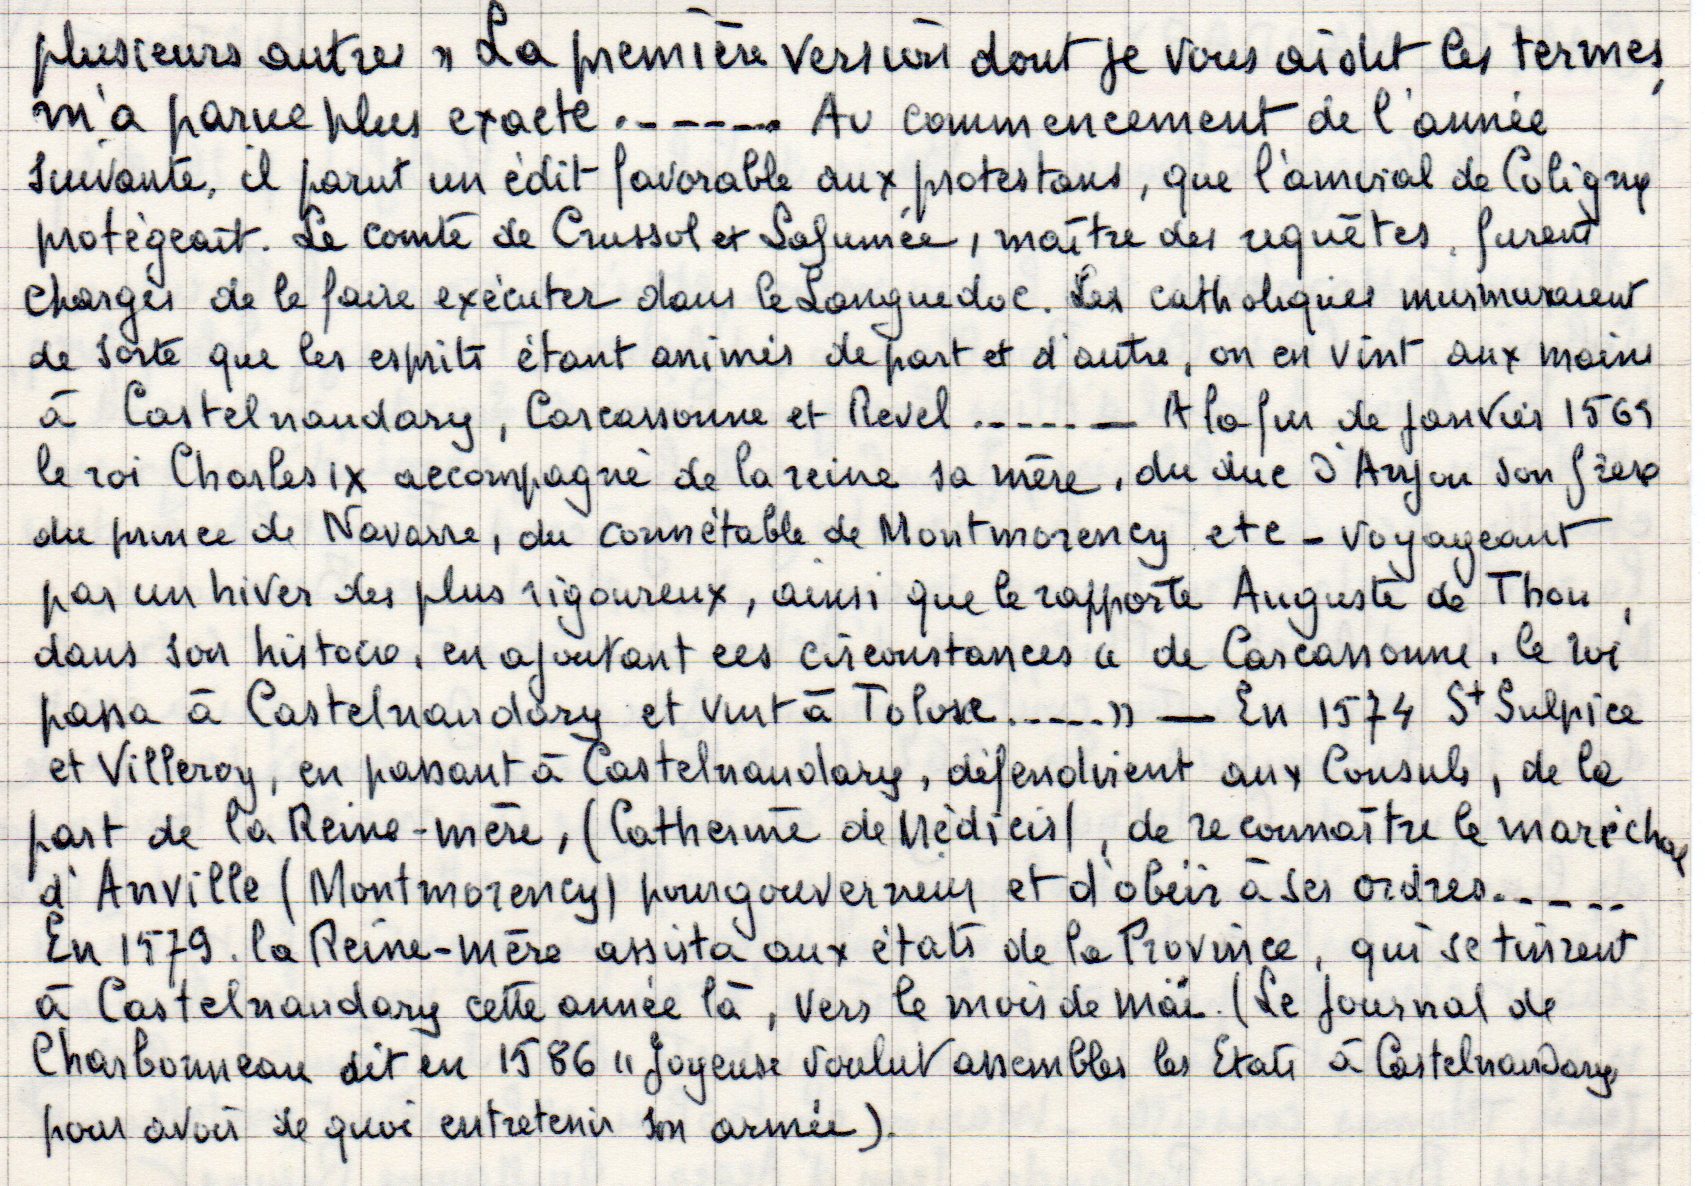 plusieurs autres » La première version dont je vous ai dit les termes,
m'a parue plus exacte .------. Au commencement de l'année
suivante, il parut un édit favorable aux protestans, que l'amiral de Coligny
protégeait. Le comte de Crussol et Lafumée, maître des requêtes, furent
chargés de le faire exécuter dans le Languedoc. Les catholiques murmuraient
de sorte que les esprits étant animés de part et d'autre, on en vint aux mains
à Castelnaudary, Carcassonne et Revel ..----- — A la fin de janvier 1565
le roi Charles IX accompagné de la reine sa mère, du duc d'Anjou son frère
du prince de Navarre, du connétable de Montmorency etc - voyageant
par un hiver des plus rigoureux, ainsi que le rapporte Auguste de Thou,
dans son histoire, en ajoutant ces circonstances « de Carcassonne, le roi
passa à Castelnaudary et vint à Tolose.----» — En 1574 St Sulpice
et Villeroy, en passant à Castelnaudary, défendirent aux Consuls, de la
part de la Reine-mère, (Catherine de Médicis), de reconnaître le maréchal
d'Anville (Montmorency) pour gouverneur et d'obéir à ses ordres.-----
En 1579. la Reine-mère assista aux états de la Province, qui se tinrent
à Castelnaudary cette année là, vers le mois de mai. (Le journal de
Charbonneau dit en 1586 « Joyeuse voulut assembler les Etats à Castelnaudary
pour avoir de quoi entretenir son armée).